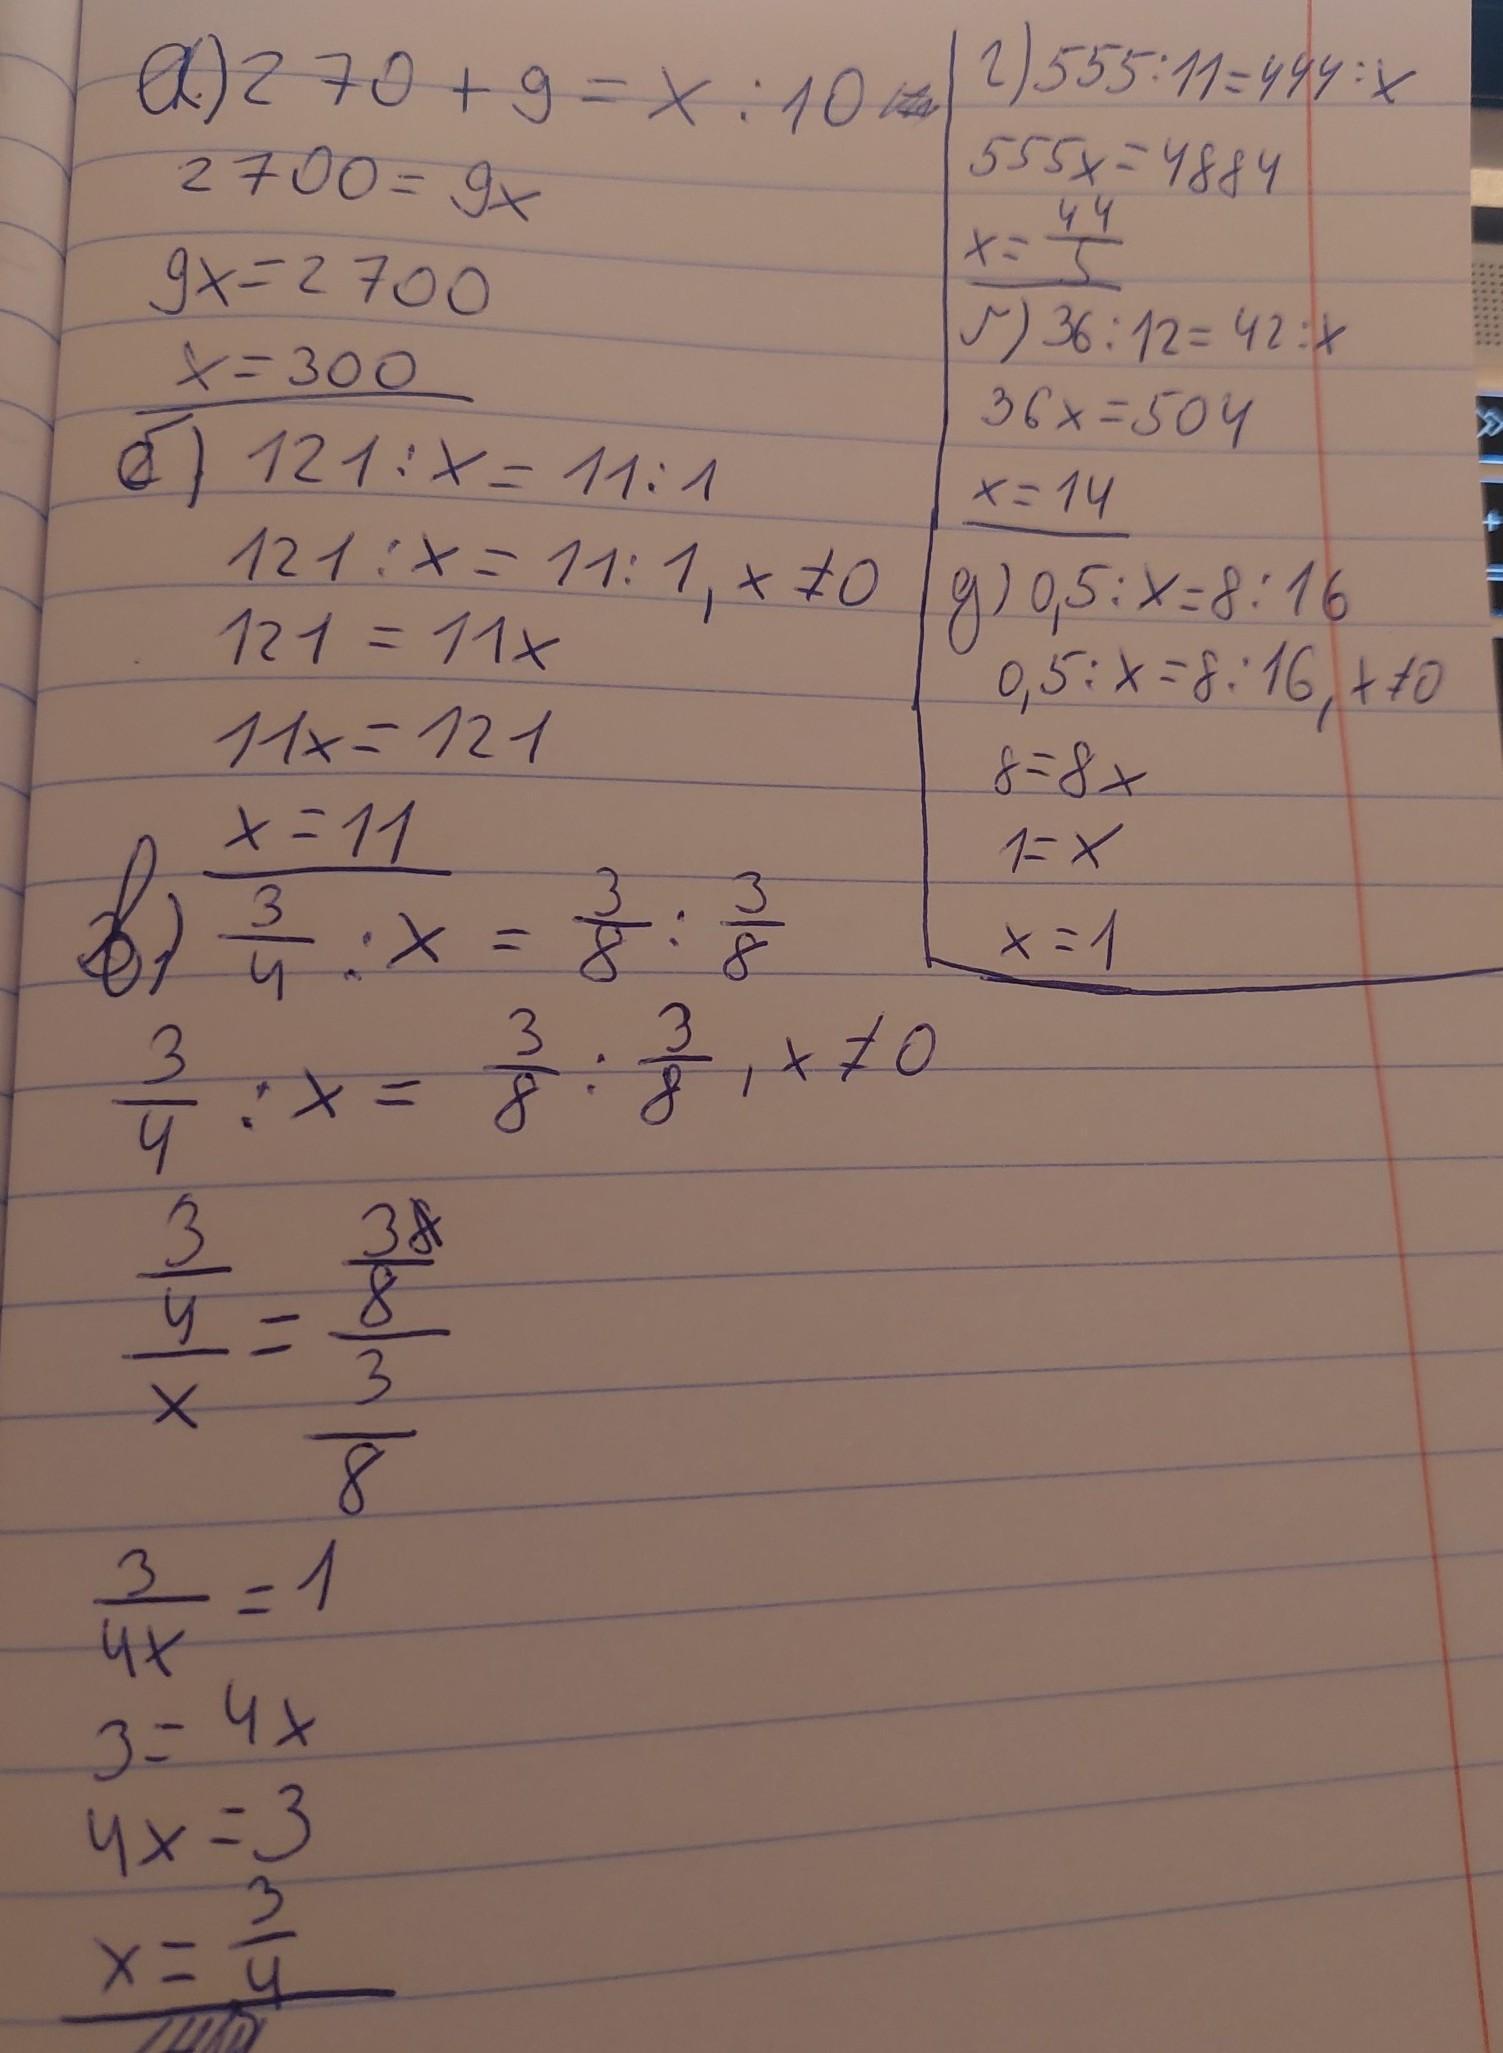 а) 270 + 9 = x : 10
2700 = 9x
9x = 2700
x = 300
б) 121 : x = 11 : 1
121 : x = 11 : 1, x ≠ 0
121 = 11x
11x = 121
x = 11
в) 3/4 : x = 3/8 : 3/8
3/4 : x = 3/8 : 3/8, x ≠ 0
3/4/x = 3/8/3/8
3/4x = 1
3 = 4x
4x = 3
x = 3/4
г) 555 : 11 = 444 : x
555x = 4884
x = 44/5
г) 36 : 12 = 42 : x
36x = 504
x = 14
g) 0,5 : x = 8 : 16
0,5 : x = 8 : 16, x ≠ 0
8 = 8x
1 = x
x = 1